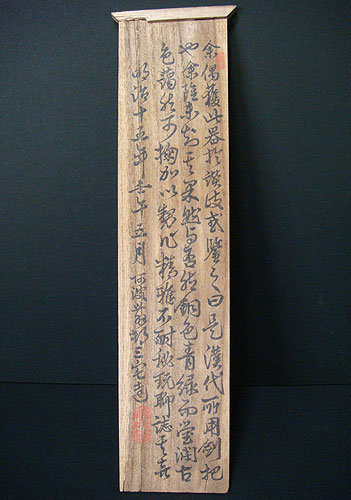 余偶獲此器於讃岐或鑒之曰是漢代所用劍把
也余雖未知其果然与否然銅色青緑而瑩潤古
色藹然可掬加以製作精雅不耐秘玩聊誌其喜
明治十五年壬午五月 阿波 三宅